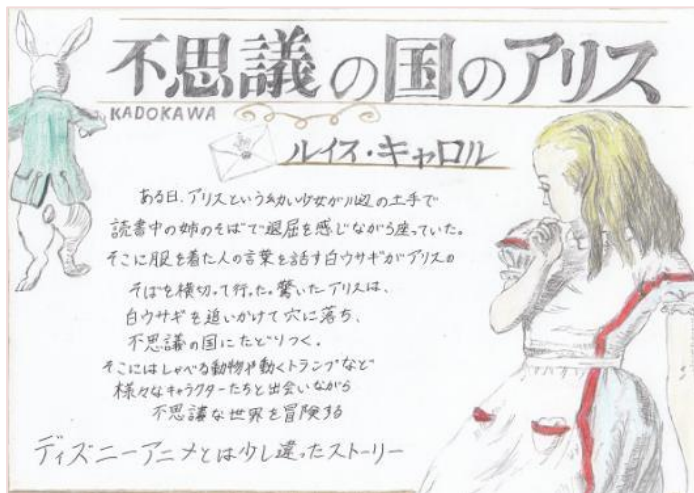 不思議の国のアリス
KADOKAWA
ルイス・キャロル
ある日、アリスという幼い少女が川辺の土手で
読書中の姉のそばで退屈を感じながら座っていた。
そこに服を着た人の言葉を話す白ウサギがアリスの
そばを横切って行った。驚いたアリスは、
白ウサギを追いかけて穴に落ち、
不思議の国にたどりつく。
そこにはしゃべる動物や動くトランプなど
様々なキャラクターたちと出会いながら
不思議な世界を冒険する
ディズニーアニメとは少し違ったストーリー